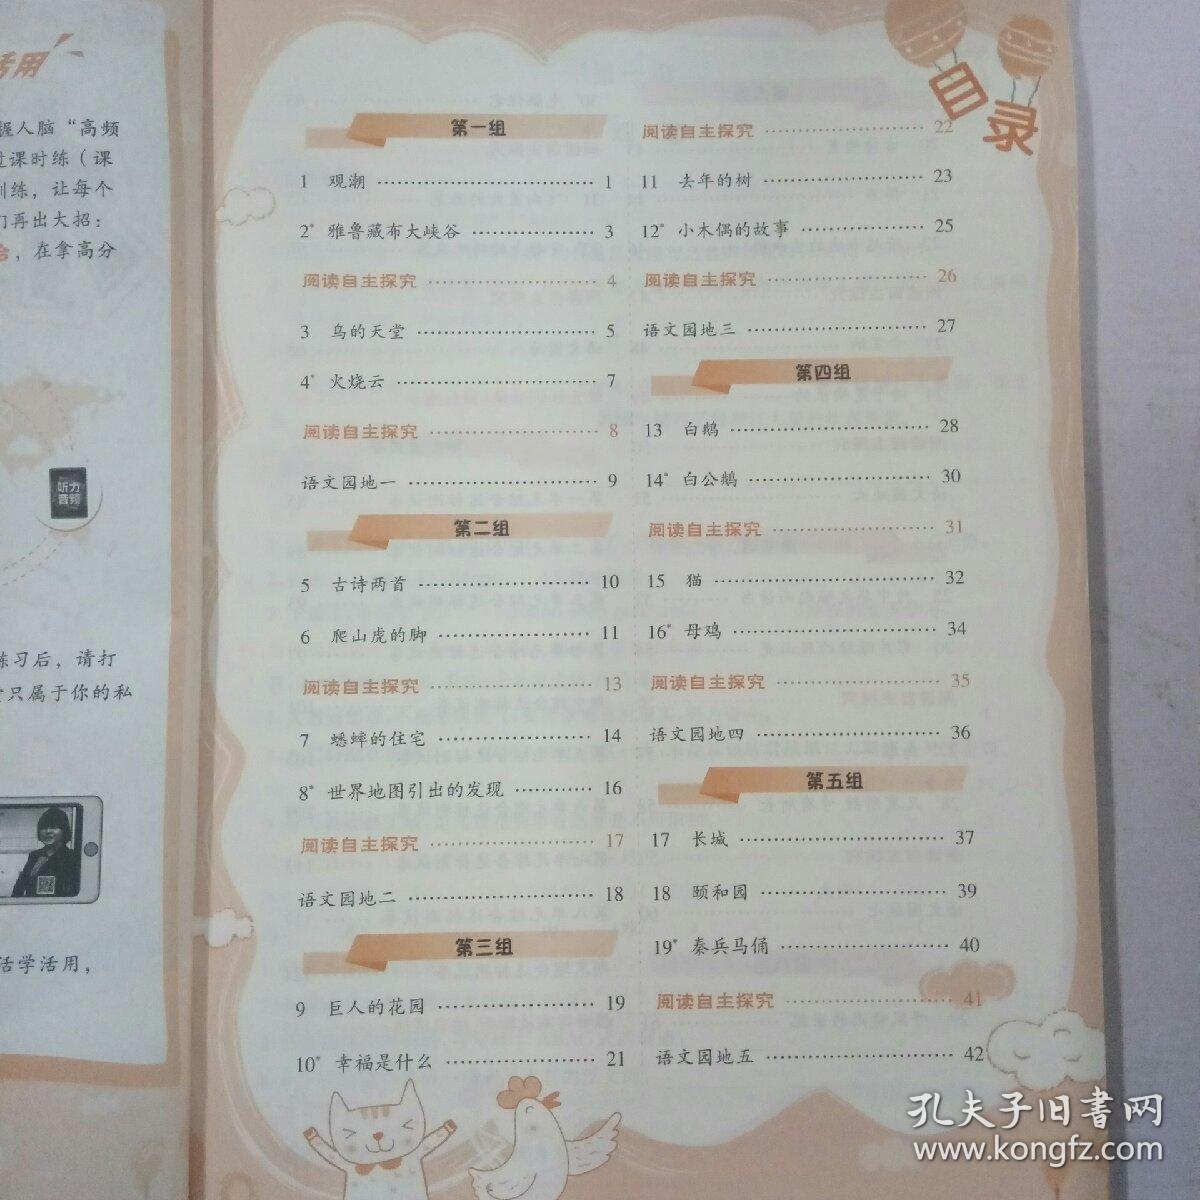 活用
握人脑“高频
过课时练（课
训练，让每个
们再出大招：
，在拿高分
听力
音频
练习后，请打
只属于你的私
活学活用，
目录
第一组
1 观潮 1
2* 雅鲁藏布大峡谷 3
阅读自主探究 4
3 鸟的天堂 5
4* 火烧云 7
阅读自主探究 8
语文园地一 9
第二组
5 古诗两首 10
6 爬山虎的脚 11
阅读自主探究 13
7 蟋蟀的住宅 14
8* 世界地图引出的发现 16
阅读自主探究 17
语文园地二 18
第三组
9 巨人的花园 19
10* 幸福是什么 21
阅读自主探究 22
11 去年的树 23
12* 小木偶的故事 25
阅读自主探究 26
语文园地三 27
第四组
13 白鹅 28
14* 白公鹅 30
阅读自主探究 31
15 猫 32
16* 母鸡 34
阅读自主探究 35
语文园地四 36
第五组
17 长城 37
18 颐和园 39
19* 秦兵马俑 40
阅读自主探究 41
语文园地五 42
孔夫子旧书网
www.kongfz.com